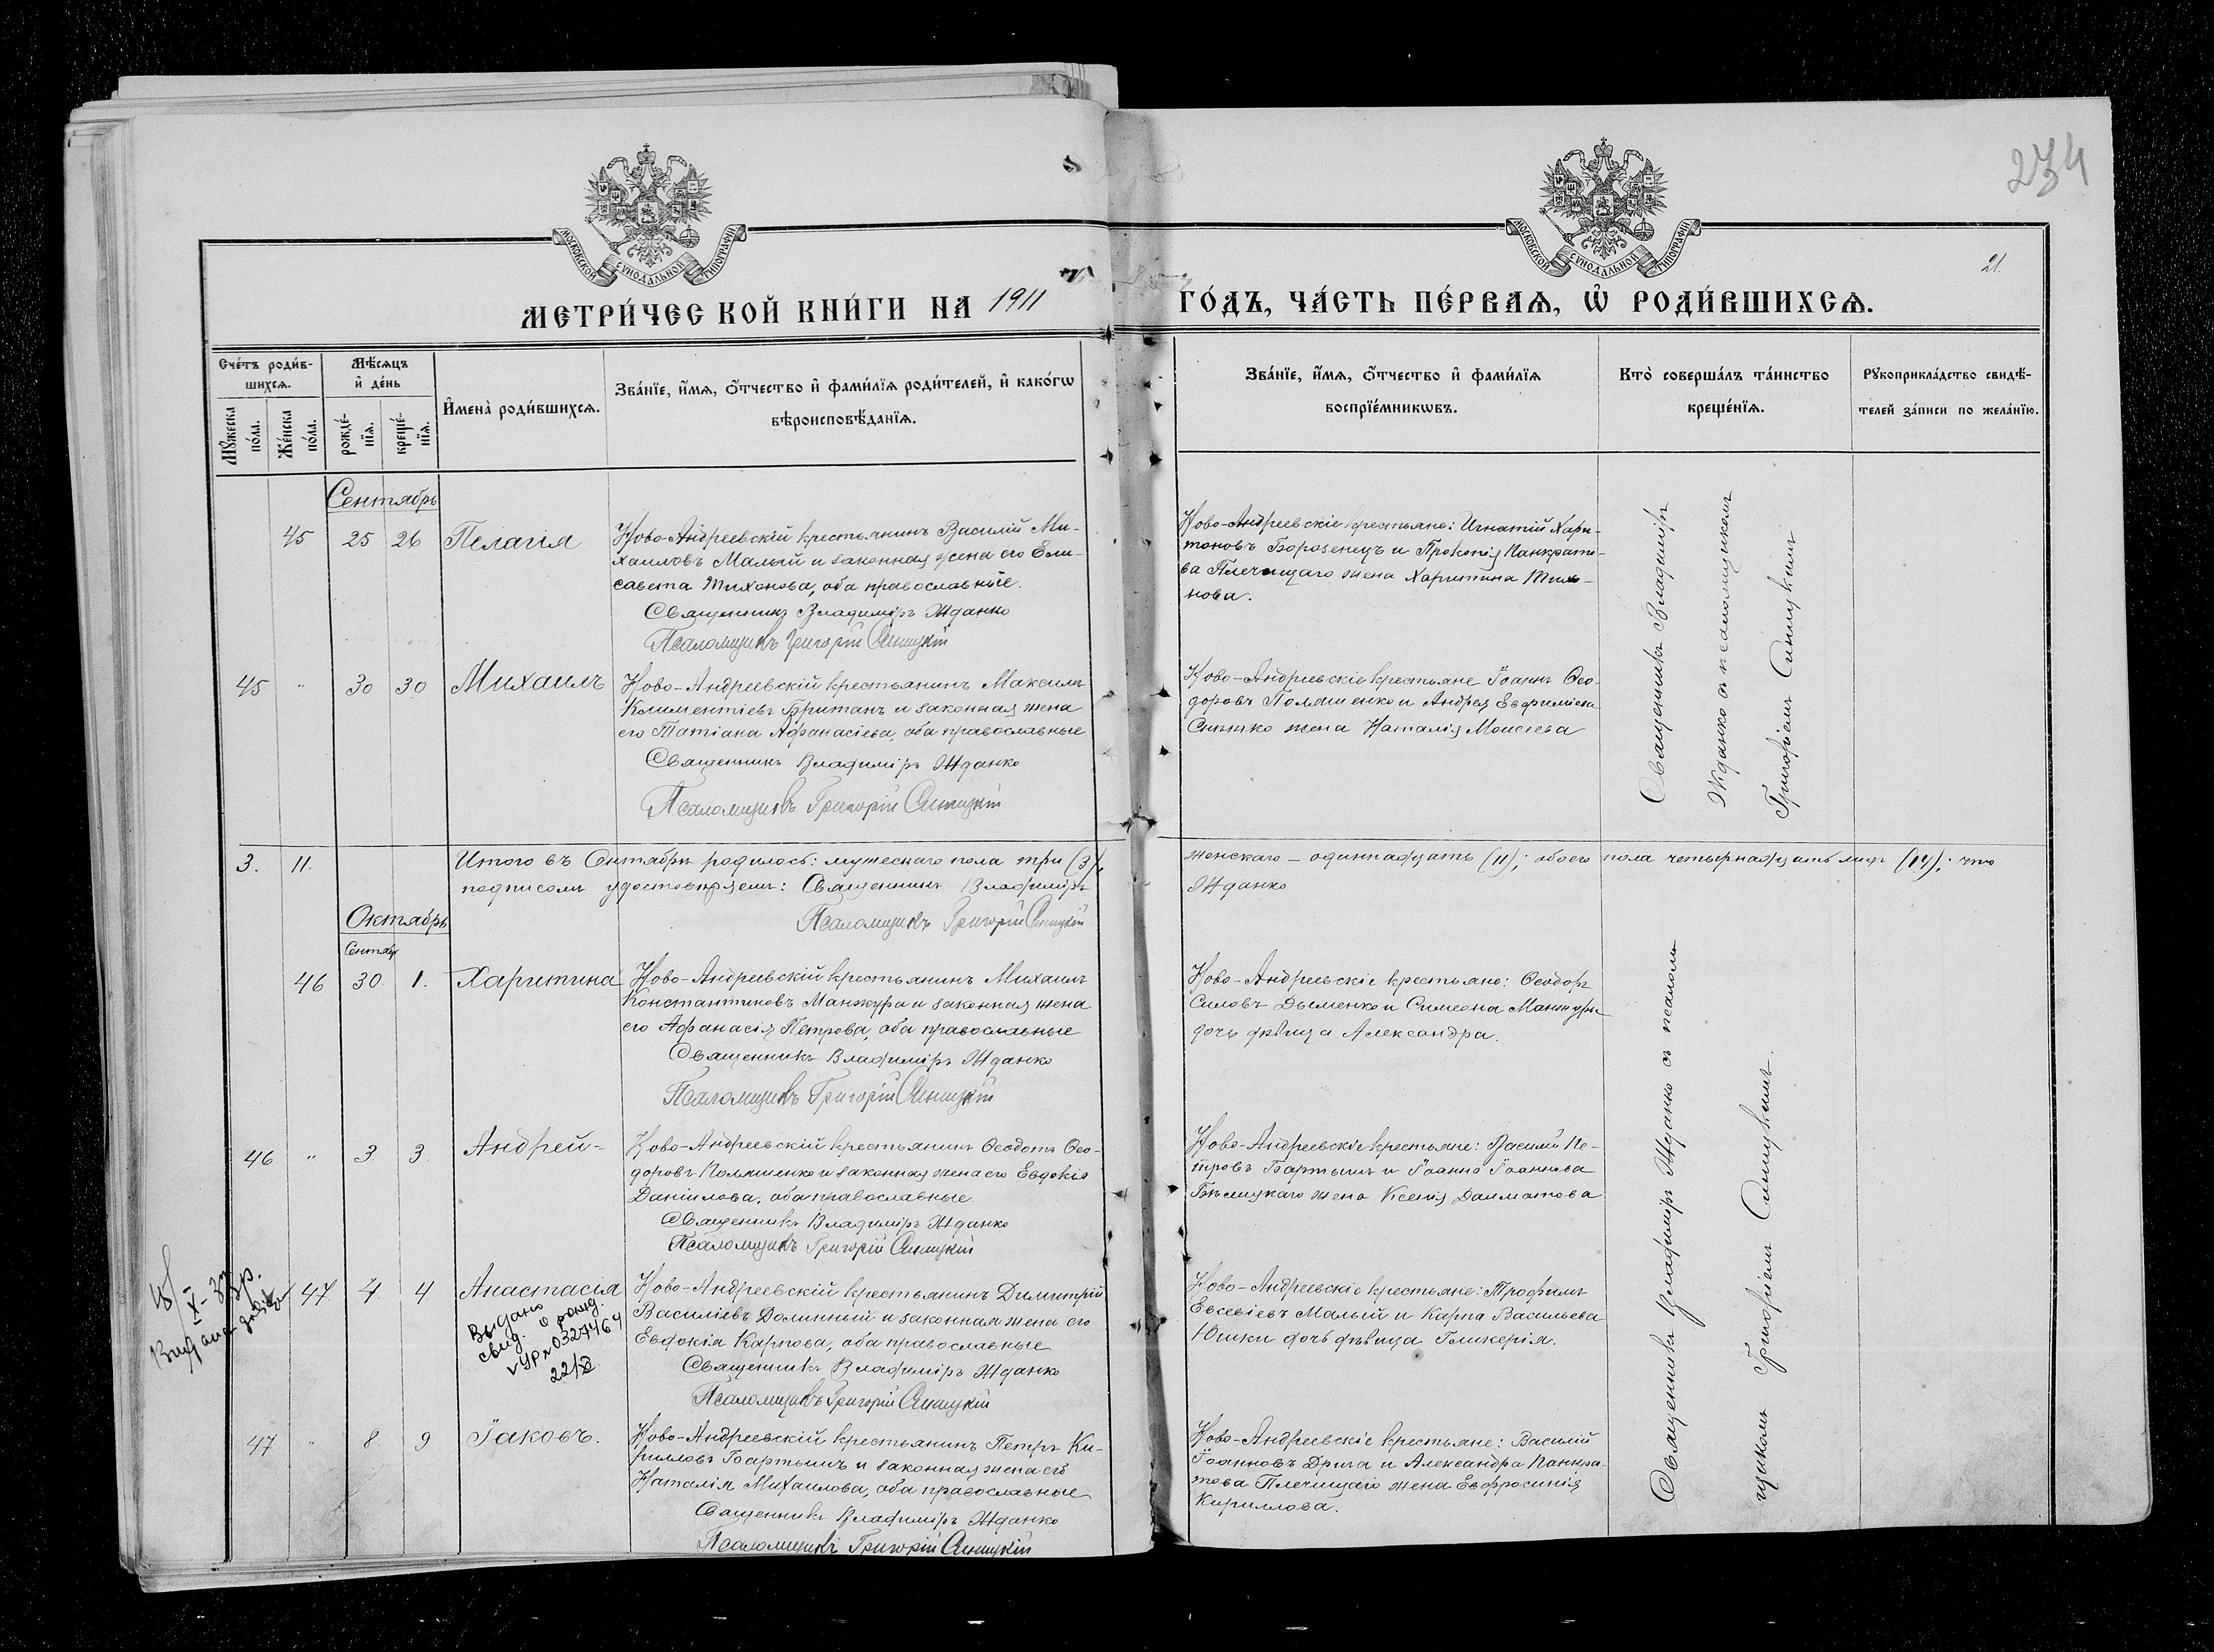 274
21.
МОСКОВСКОЙ СѴНОДАЛЬНОЙ ТИПОГРАФІИ
МОСКОВСКОЙ СѴНОДАЛЬНОЙ ТИПОГРАФІИ
МЕТРИ́ЧЕСКОЙ КНИ́ГИ НА 1911 ГО́ДЪ, ЧА́СТЬ ПЕ́РВАѦ, Ѡ҆ РОДИ́ВШИХСѦ.
Сче́тъ роди́в-
шихсѧ.
Мѣ́сѧцъ
и҆ де́нь
Мꙋ́жеска
по́ла.
Же́нска
по́ла.
рожде́-
нїѧ.
креще́-
нїѧ.
И҆мена̀ роди́вшихсѧ.
Зва́нїе, и҆́мѧ, о҆́тчество и҆ фами́лїѧ роди́телей, и҆ како́гѡ
вѣроисповѣ́данїѧ.
Зва́нїе, и҆́мѧ, о҆́тчество и҆ фами́лїѧ
воспрїе́мникѡвъ.
Кто̀ соверша́лъ та́инство
креще́нїѧ.
Рꙋкоприкла́дство свидѣ́-
телей за́писи по жела́нїю.
Сентябрь
45 25 26 Пелагія
Ново-Андреевскій крестьянинъ Василій Ми-
хаиловъ Малый и законная жена его Ели-
савета Тихонова, оба православные.
Священникъ Владиміръ Жданко
Псаломщикъ Григорій Синицкій
Ново-Андреевскіе крестьяне: Игнатій Хари-
тоновъ Борозенецъ и Прокопія Панкрато-
ва Плечищаго жена Харитина Тихо-
нова.
45 " 30 30 Михаилъ
Ново-Андреевскій крестьянинъ Максимъ
Климентіевъ Британъ и законная жена
его Татіана Афанасіева, оба православные
Священникъ Владиміръ Жданко
Псаломщикъ Григорій Синицкій
Ново-Андреевскіе крестьяне Іоаннъ Ѳео-
доровъ Поляшенко и Андрея Евфиміева
жена Наталія Моисеева
Священникъ Владиміръ
Жданко съ псаломщикомъ
Григоріемъ Синицкимъ
3. 11. Итого въ Сентябрѣ родилось: мужескаго пола три (3), женскаго - одиннадцать (11); обоего пола четырнадцать лицъ (14); что
подписомъ удостовѣряемъ: Священникъ Владиміръ Жданко
Псаломщикъ Григорій Синицкій
Октябрь
Сентяб
46 30 1. Харитина
Ново-Андреевскій крестьянинъ Михаилъ
Константиновъ Манжура и законная жена
его Афанасія Петрова, оба православные
Священникъ Владиміръ Жданко
Псаломщикъ Григорій Синицкій
Ново-Андреевскіе крестьяне: Ѳеодоръ
Силовъ Дьяменко и Симеона Манжуры
дочь дѣвица Александра.
46 " 3 3 Андрей-
Ново-Андреевскій крестьянинъ Ѳеодотъ Ѳео-
доровъ Поляшенко и законная жена его Евдокія
Даніилова, оба православные.
Священникъ Владиміръ Жданко
Псаломщикъ Григорій Синицкій
Ново-Андреевскіе крестьяне: Василій Пе-
тровъ Бартышъ и Іоанна Іоаннова
Бѣлицкаго жена Ксенія Далматова
47 4 4 Анастасія
Выдано
свид. о рожд.
УР № 0327464
22/XI
Ново-Андреевскій крестьянинъ Димитрій
Василіевъ Долинный и законная жена его
Евдокія Карпова, оба православные
Священникъ Владиміръ Жданко
Псаломщикъ Григорій Синицкій
Ново-Андреевскіе крестьяне: Трофимъ
Евсевіевъ Малый и Карпа Васильева
Юшки дочь дѣвица Гликерія.
47 " 8 9 Іаковъ.
Ново-Андреевскій крестьянинъ Петръ Ки-
рилловъ Бартышъ и законная жена его
Наталія Михаилова, оба православные
Священникъ Владиміръ Жданко
Псаломщикъ Григорій Синицкій
Ново-Андреевскіе крестьяне: Василій
Іоанновъ Дрига и Александра Панкра-
това Плечищаго жена Евфросинія
Кириллова.
Священникъ Владиміръ Жданко съ псалом-
щикомъ Григоріемъ Синицкимъ.